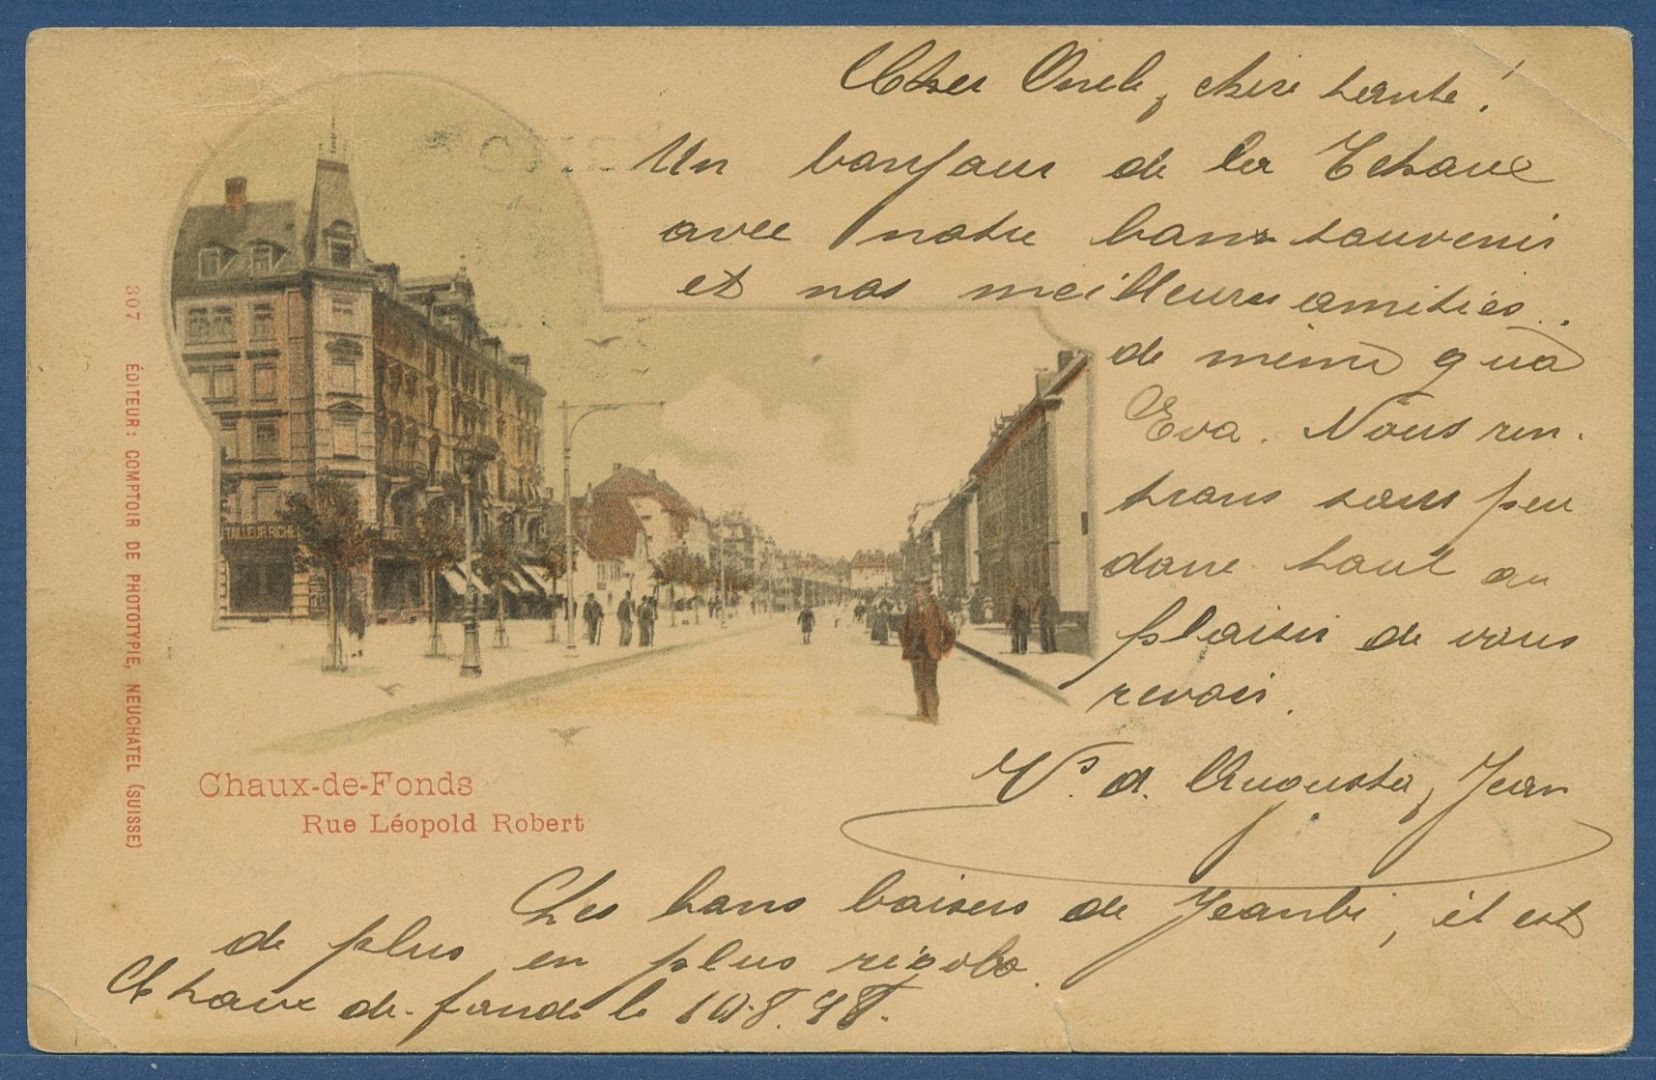 Cher Oncle, chère tante!
Un bonjour de la Tchaux
avec notre bons souvenir
et nos meilleures amitiés.
de même qu'à
Eva. Nous ren-
trons sous peu
dans haut au
plaisir de vous
revoir.
Vs. d. Augusta, Jean
Les bons baisers de Jeanbi, il est
de plus en plus rigolo.
Chaux-de-fonds le 10.8.98.
TAILLEUR RICHE
Chaux-de-Fonds
Rue Léopold Robert
307 ÉDITEUR: COMPTOIR DE PHOTOTYPIE, NEUCHATEL (SUISSE)